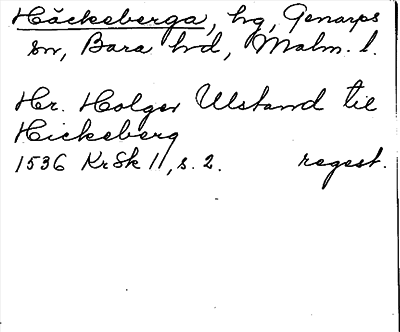 Häckeberga, hg, Genarps
sn, Bara hd, Malm. l.
Hr. Holger Ulstand til
Hickeberg
1536 KrSk 11, s. 2. regest.